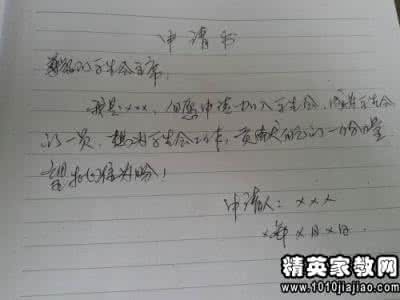 申请书
尊敬的学生会主席:
我是:×××,申请加入学生会,成为学生会
的一员,想为学生会工作,贡献自己的一份力量
望批准为盼!
申请人: ×××
×年×月×日.
精英家教网
www.1010jiajiao.com